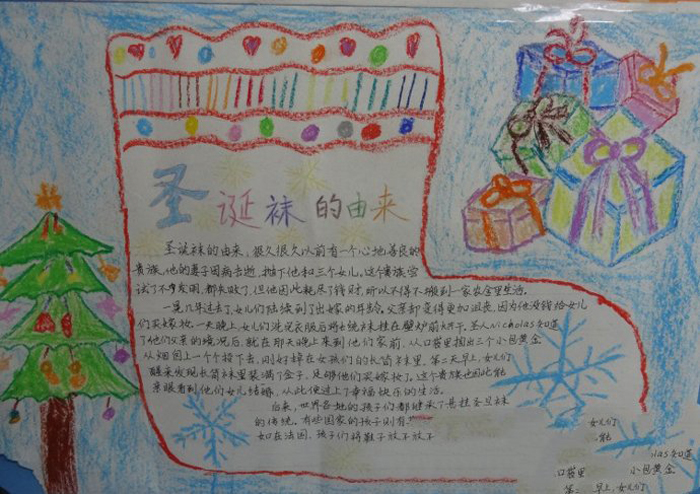 圣诞袜的由来
圣诞袜的由来：很久很久以前有一个心地善良的
贵族，他的妻子因病去逝，抛下他和三个女儿。这个贵族尝
试了不少发明，都失败了，但他因此耗尽了钱财，所以不得不搬到一家农舍里生活
一晃几年过去了，女儿们陆续到了出嫁的年龄。父亲却变得更加沮丧，因为他没钱给女儿
们买嫁妆。一天晚上，女儿们洗完衣服后将长统袜挂在壁炉前烘干。圣人Nicholas知道
了他们父亲的境况后，就在那天晚上来到他们家前，从口袋里掏出三个小包黄金
从烟囱上一个个投下去，刚好掉在女孩们的长筒袜里。第二天早上，女儿们
醒来发现长筒袜里装满了金子，足够他们买嫁妆了。这个贵族也因此能
亲眼看到他们女儿结婚，从此便过上了幸福快乐的生活。
后来，世界各地的孩子们都继承了悬挂圣旦袜
的传统。有些国家的孩子则有
如在法国，孩子们将鞋子放
女儿们
能
las知道
口袋里
小包黄金
第二
早上，女儿们